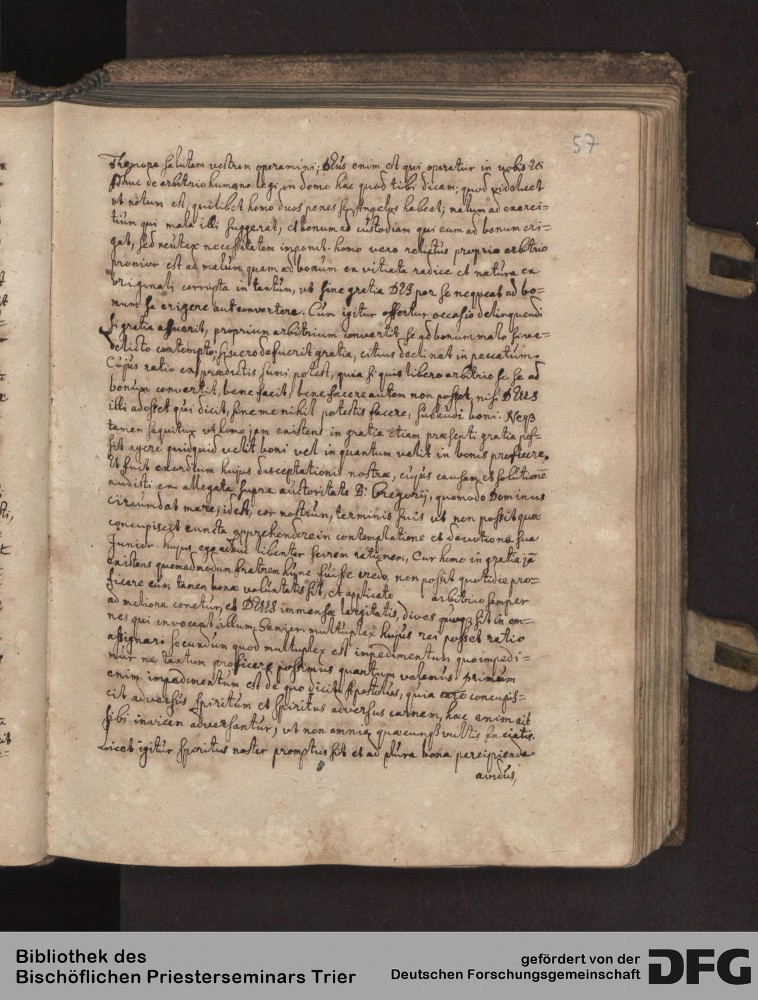 57
Tremore salutem vestram operamini; DEus enim est qui operatur in vobis &c
Adhuc de arbitrio humano legi in domo hac quod tibi dicam: quod videlicet
ut notum est, quilibet homo duos penes se Angelos habeat; malum ad exerci=
tium qui mala illi suggerat, et bonum ad custodiam qui eum ad bonum eri=
gat, sed neuter necessitatem imponit. homo vero relictus proprio arbitrio
pronior est ad malum quam ad bonum ex vitiata radice et natura ex
originali corrupta in tantum, ut sine gratia DEI per se nequeat ad bo=
num se erigere aut convertere. Cum igitur offertur occasio delinquendi
si gratia affuerit, proprium arbitrium convertit se ad bonum malo sive
delicto contempto; si vero defuerit gratia, citius declinat in peccatum.
Cujus ratio ex praedictis sumi potest, quia si quis libero arbitrio se ad
bonum convertit, bene facit, bene facere autem non posset, nisi DEUS
illi adesset qui dicit, sine me nihil potestis facere, subaudi boni. Neqß
tamen sequitur ut homo jam existens in gratia etiam praesenti gratia pos=
sit agere quidquid velit boni vel in quantum velit in bonis proficere.
Et fuit exordium hujus disceptationis nostrae, cujus causam et solutionē
audisti ex allegata supra auctoritate B. Gregorij, quomodo Dominus
circumdat mare, id est, cor nostrum, terminis suis ut non possit quae
concupiscit cuncta apprehendere in contemplatione et devotione sua
Junior. hujus ego adhuc libenter scirem rationem, Cur homo in gratia jā
existens quemadmodum fratrem hunc fuisse credo, non possit quotidie pro=
ficere cum tamen bonae voluntatis sit, et applicato arbitrio semper
ad meliora conetur, et DEUS immensae largitatis, dives quoqß sit in om=
nes qui invocant illum. Senior. multuplex hujus rei posset ratio
assignari secundum quod multuplex est impedimentum quo impedi=
mur ne tantum proficere possimus quantum volumus. primum
enim impedimentum est de quo dicit Apostolus, quia caro concupis=
cit adversus spiritum et spiritus adversus carnem, haec enim ait
sibi invicem adversantur, ut non omnia quaecunqß vultis faciatis.
Licet igitur spiritus noster promptus sit et ad plura bona percipienda
avidus,
Bibliothek des
Bischöflichen Priesterseminars Trier
gefördert von der
Deutschen Forschungsgemeinschaft
DFG